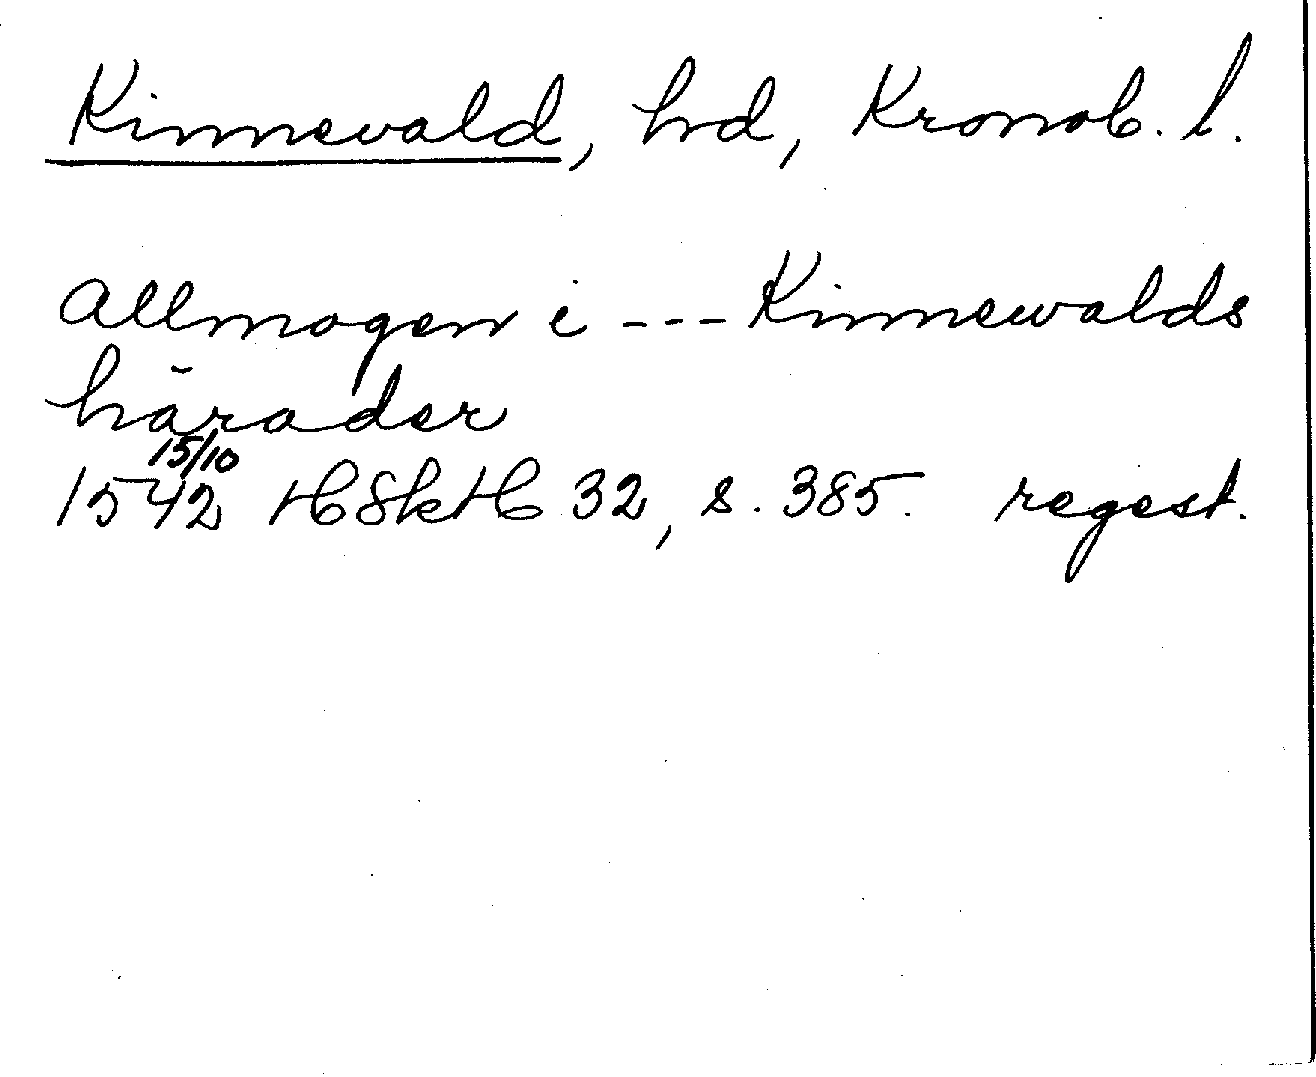 Kinnevald, hrd, Kronob. l.
Allmogen i --- Kinnewalds
härader
15/10
1542 HSkH 32, s. 385. regest.